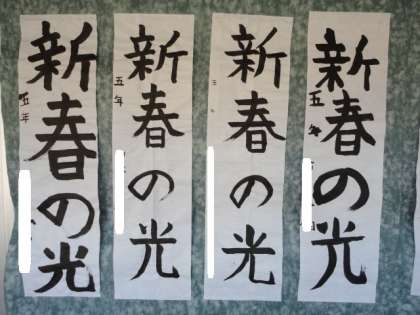 新春の光
五年
新春の光
五年
新春の光
新春の光
五年